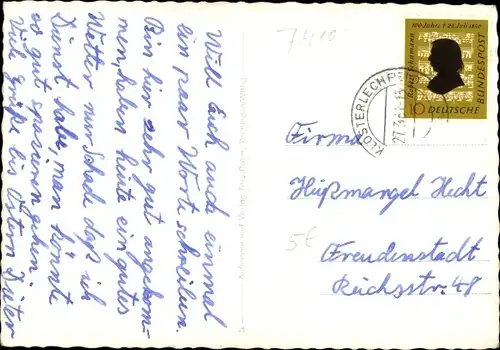 Will Euch auch einmal
ein paar Worte schreiben.
Bin hier sehr gut angekom-
men, haben heute ein gutes
Wetter nur Schade daß ich
Dienst habe, man könnte
so gut spazieren gehen.
Viel grüße bis Ostern Dieter
7410
100 Jahre † 29. Juli 1856
Robert Schumann
10 DEUTSCHE
BUNDESPOST
KLOSTERLECHF
27.3.
Firma
Hüßmangel Hecht
5€
Freudenstadt
Reichsstr. 48